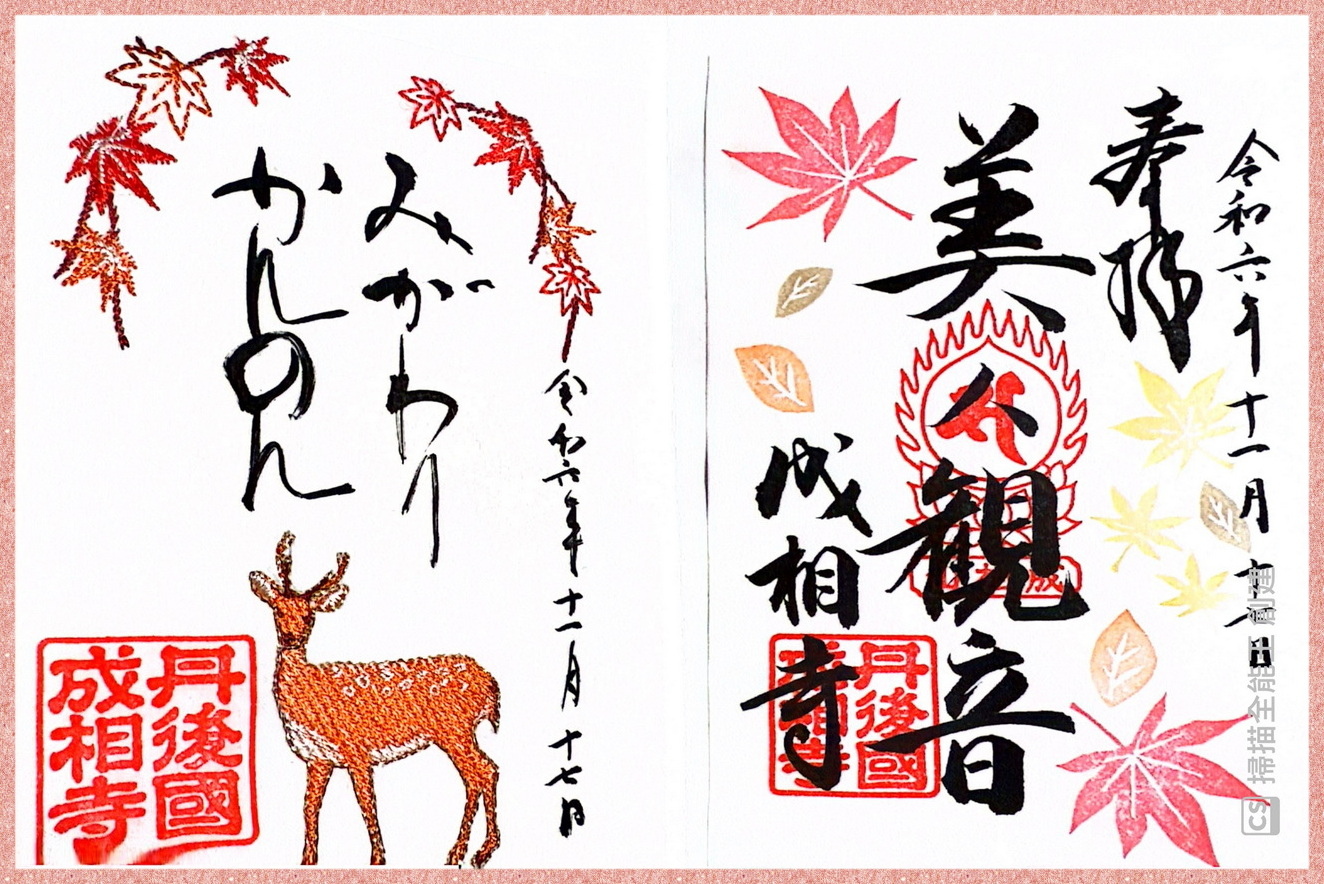 令和六年十一月十七日
奉拝
美人観音
成相寺
丹後國
成相寺
令和六年十一月十七日
みがわり
かんのん
丹後國
成相寺
CS 掃描全能王 創建